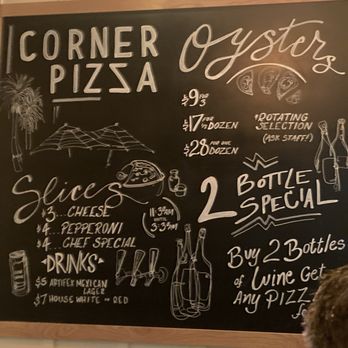 CORNER
PIZZA
Slices
$3...CHEESE
$4...PEPPERONI
$4...CHEF SPECIAL
11:30AM
UNTIL
3:33PM
DRINKS
$5 ARTIFEX MEXICAN
LAGER
$7 HOUSE WHITE OR RED
Oysters
$9 FOR 3
$17 FOR ½ DOZEN
$28 FOR ONE DOZEN
*ROTATING
SELECTION
(ASK STAFF!)
2 BOTTLE
SPECIAL
Buy 2 Bottles
of Wine Get
Any PIZZ